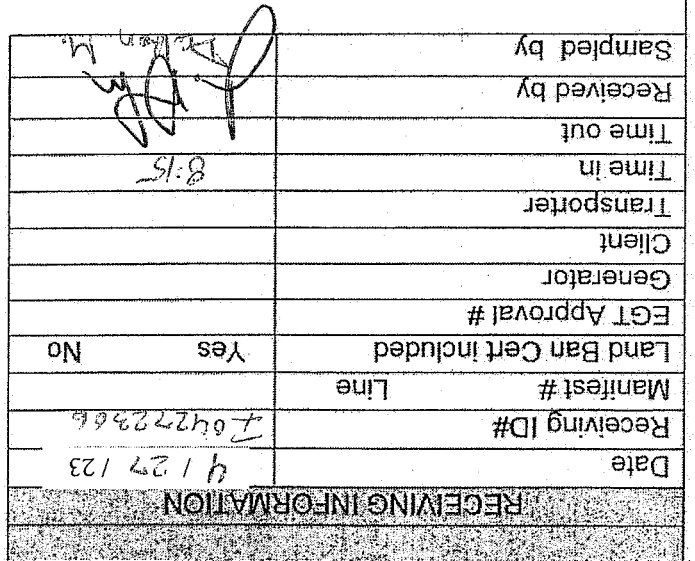 RECEIVING INFORMATION
Date 4/27/23
Receiving ID# I04272306
Manifest # Line
Land Ban Cert included Yes No
EGT Approval #
Generator
Client
Transporter
Time in 8:15
Time out
Received by
Sampled by